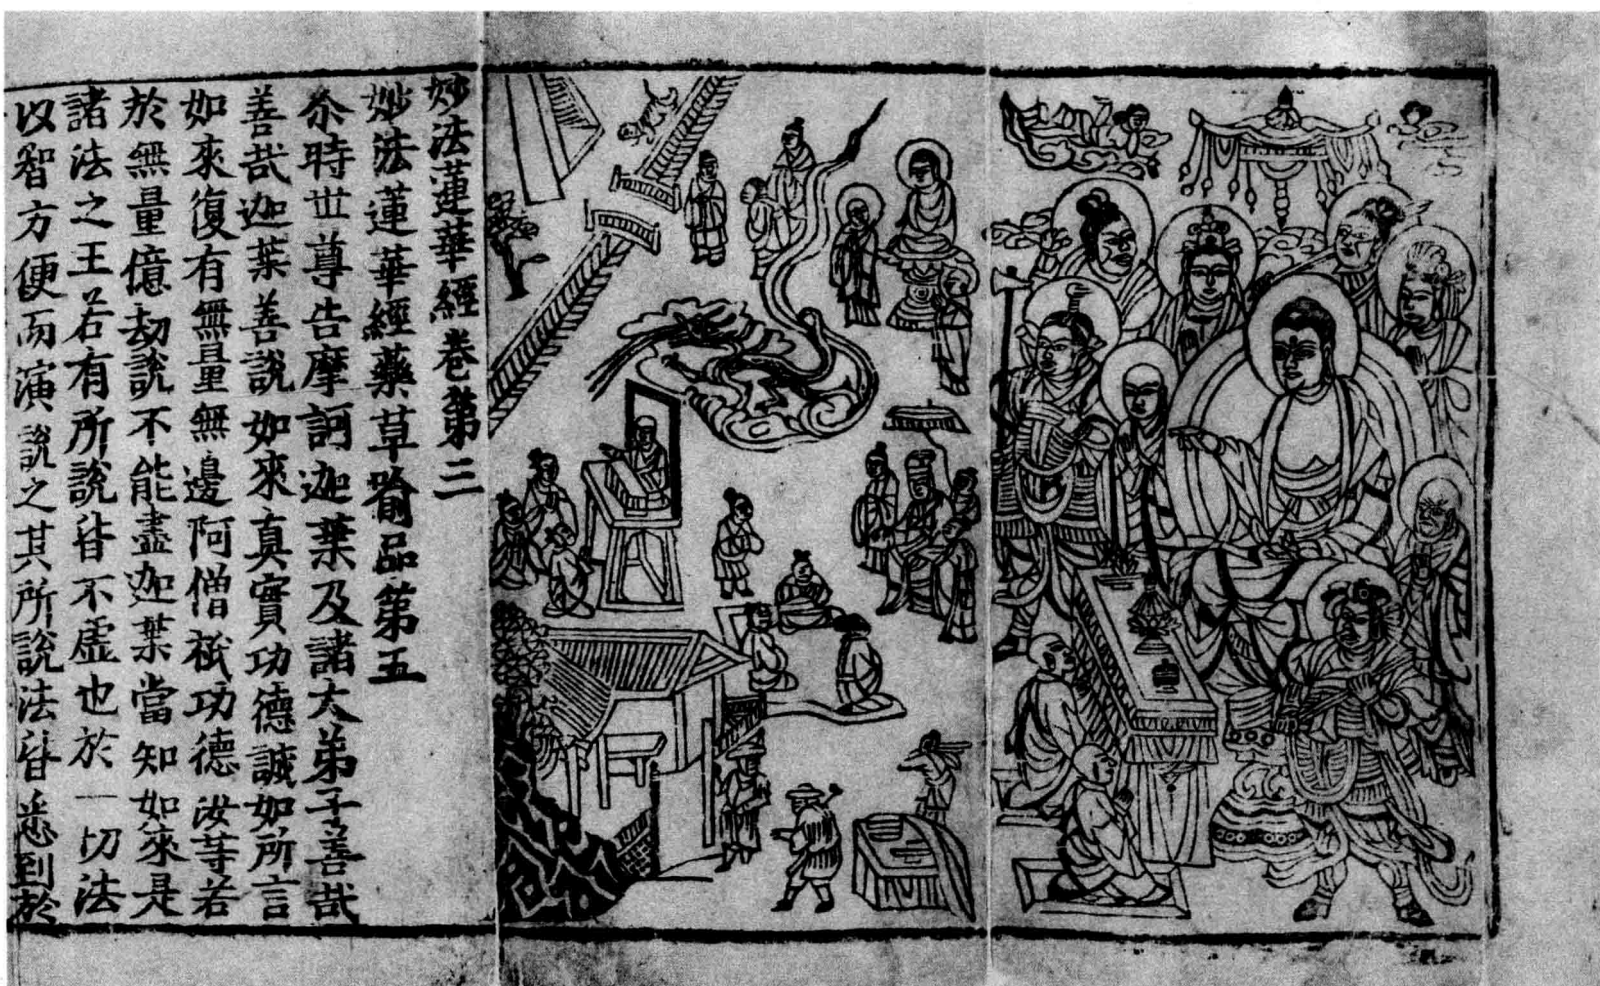 妙法蓮華經卷第三
妙法蓮華經藥草喻品第五
尒時世尊告摩訶迦葉及諸大弟子善哉
善哉迦葉善說如來真實功德誠如所言
如來復有無量無邊阿僧祇功德汝等若
於無量億劫說不能盡迦葉當知如來是
諸法之王若有所說皆不虛也於一切法
以智方便而演說之其所說法皆悉到於